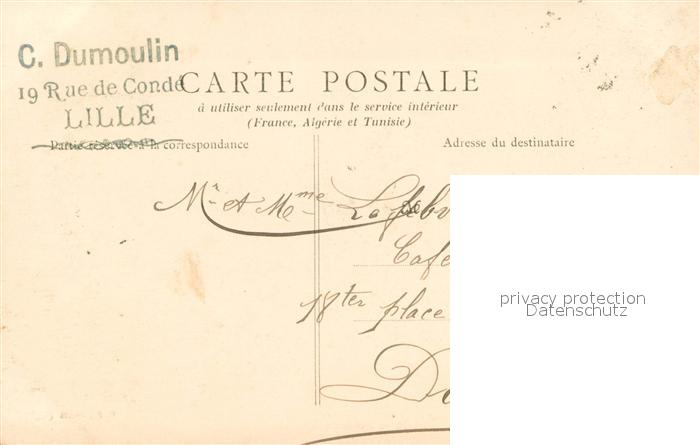 C. Dumoulin
19 Rue de Condé
LILLE
CARTE POSTALE
à utiliser seulement dans le service intérieur
(France, Algérie et Tunisie)
Partie réservée à la correspondance
Adresse du destinataire
Mr et Mme
Café
18ter place
privacy protection
Datenschutz